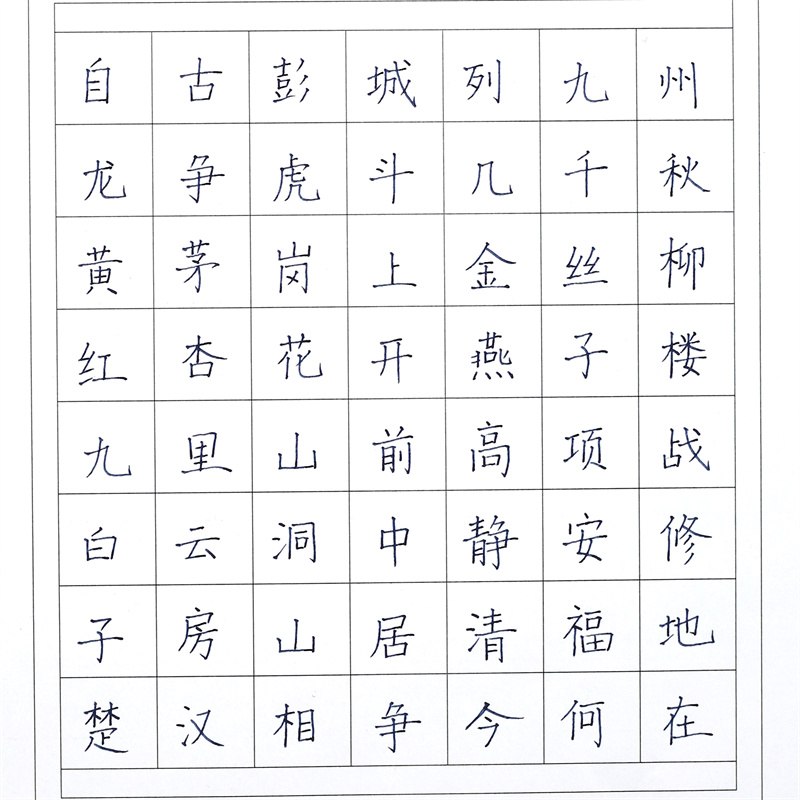 自古彭城列九州
龙争虎斗几千秋
黄茅岗上金丝柳
红杏花开燕子楼
九里山前高项战
白云洞中静安修
子房山居清福地
楚汉相争今何在